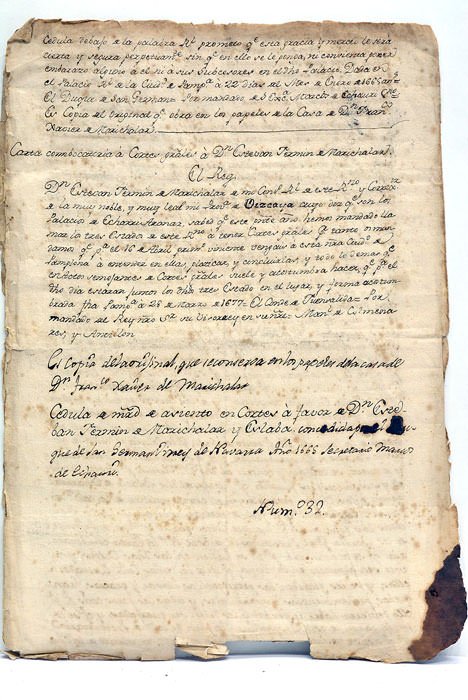 Cedula debajo de la palabra Rl. prometo qe. esta gracia y merced le será
cierta y segura perpetuamte. sin qe. en ello se le ponga, ni consienta poner
embarazo alguno à el ni a sus Subcesores en el dho Palacio. Data en
el Palacio Rl. de la Ciud. de Pampa. à 22 dias del Mes de Enero de 1665 ans.
El Duque de San German = Por mandado de S Exa. Marcos de Echauri Srio.
Es Copia del original qe. obra en los papeles de la Casa de Dn. Fran.co
Xavier de Marichalar.
Carta convocatoria à Cortes grales à Dn. Estevan Fermin de Marichalar.
El Rey
Dn. Estevan Fermin de Marichalar de mi Consº Rl. de este Rno. y Corregr.
de la muy noble, y muy leal mi Prova. de Vizcaya cuyo dizqe. son los
Palacios de Echarri Aranaz, sabed qe. este prnte año hemos mandado lla-
mar los tres Estados de este Rno. à tener Cortes grales Por tanto os man-
damos qe. pa. el 16 de Abril primº viniente vengais à esta nra Ciud. de
Pamplona à entender en ellas, platicar, y concluirlas, y todo lo demas qe.
en actos semejantes de Cortes grales suele y acostumbra hacer, qe. pa. el
dho dia estaran juntos los dhos tres Estados en el lugar, y forma acostum-
brada fha Pampa. à 26 de Marzo de 1677 = El Conde de Fuensalida = Por
mandado del Rey nro Sr. su Visorrey en su nre = Manl. de Colmena-
res, y Antillon
Es Copia del original, que se conserva en los papeles de la casa de
Dn. Franco. Xavier de Marichalar
Cedula de mrd. de asiento en Cortes à favor de Dn. Este-
ban Fermin de Marichalar y Eslaba, concedida por el Du-
que de San German Virrey de Navarra Año 1665 Secretario Marcos
de Echauri.
Num.º 32.